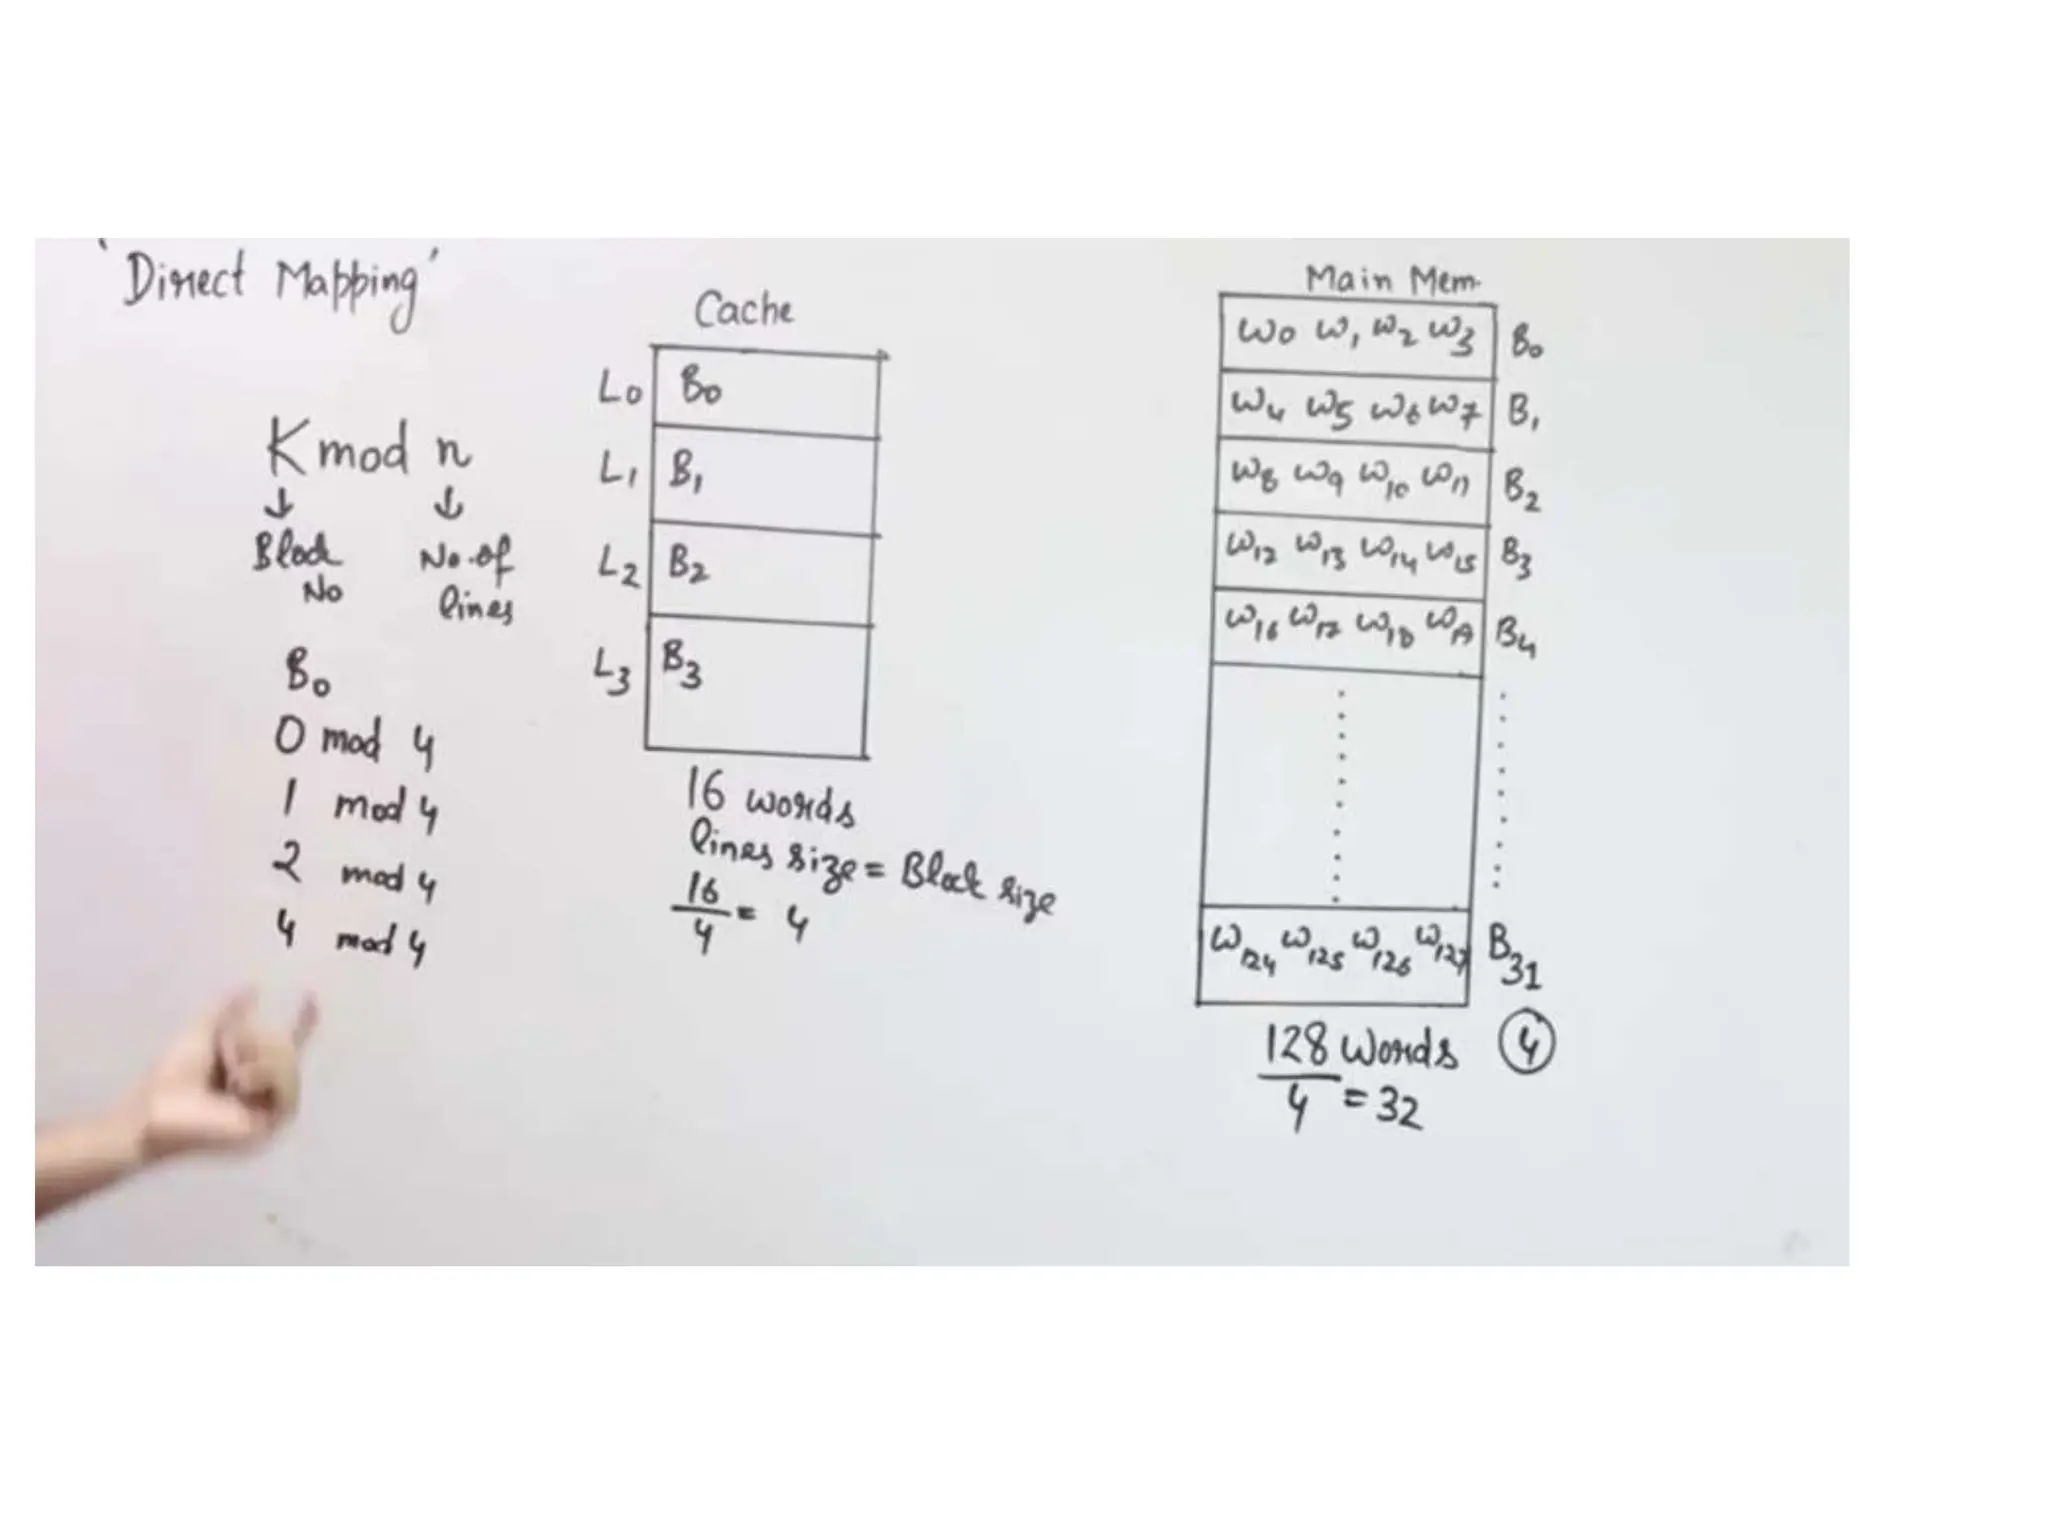 'Direct Mapping'
K mod n
Block No
No. of lines
B0
0 mod 4
1 mod 4
2 mod 4
4 mod 4
Cache
L0 B0
L1 B1
L2 B2
L3 B3
16 words
lines size = Block size
16/4 = 4
Main Mem.
W0 W1 W2 W3 B0
W4 W5 W6 W7 B1
W8 W9 W10 W11 B2
W12 W13 W14 W15 B3
W16 W17 W18 W19 B4
W124 W125 W126 W127 B31
128 Words 4
128/4 = 32